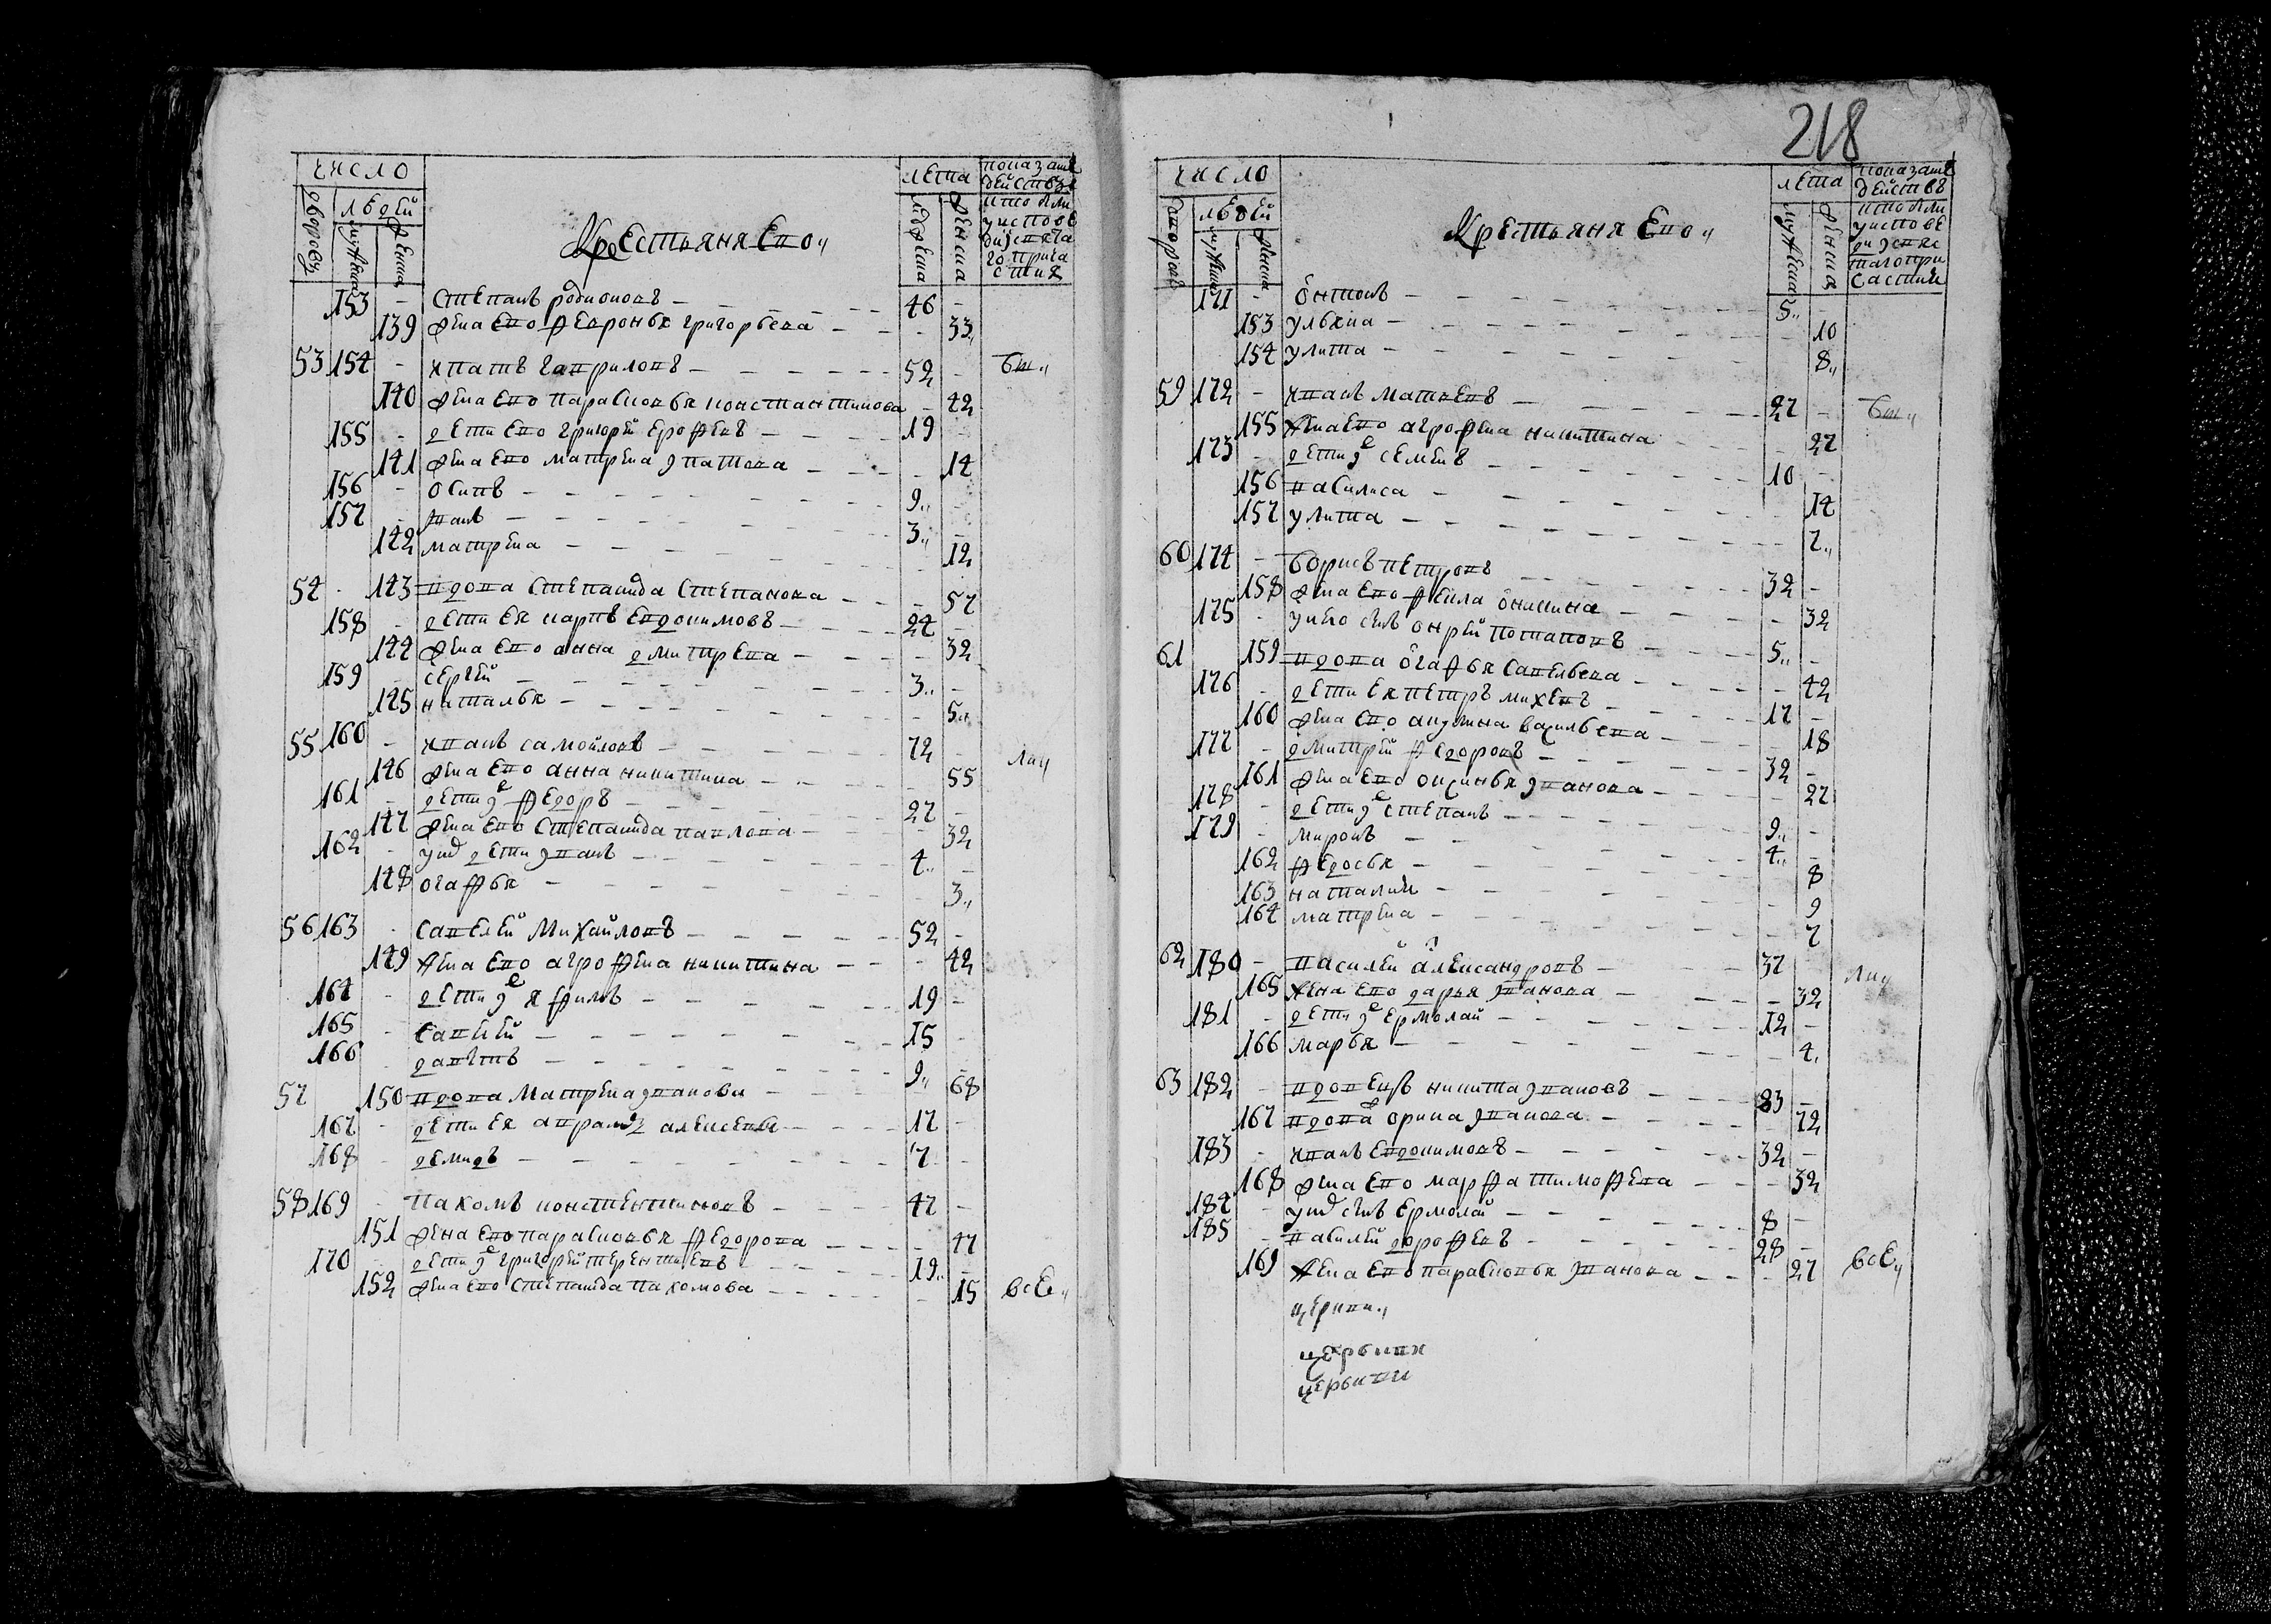 число
дворовъ
людей
мужеска
женска
Крестьяня Ево
лета
мужеска
женска
показате
действъ
кто былъ
у испове
ди и свята
го прича
стия
153 - Степанъ родионовъ - 46 -
139 жена Ево Февронья григорьева - 33
53 154 - Ипатъ гавриловъ - 52 - Бы
140 жена Ево парасковья константинова - 42
155 - дети Ево григорей Ерофеевъ - 19 -
141 жена Ево матрена ипатова - 14
156 - Осипъ - 9
157 - иванъ - 3
142 матрена - 12
54 - 143 вдова Степанида Степанова - 57
158 - дети Ея карпъ Евдокимовъ - 24 -
144 жена Ево анна дмитрева - 32
159 - сергей - 3
145 наталья - 5
55 160 - Иванъ самойловъ - 72 -
146 жена Ево анна никитина - 55
161 - дети е Федоръ - 27 -
147 жена Ево Степанида павлова - 32
162 - у нид дети иванъ - 4
148 огафья - 3
56 163 - Савелей Михайловъ - 52 -
149 жена Ево аграфена никитина - 42
164 - дети е яфимъ - 19 -
165 - Савелей - 15 -
166 - - 9
57 150 вдова Матрена иванова - 68
167 - дети Ея аврамъ алексеевы - 17 -
168 - демидъ - 7 -
58 169 - пахомъ константиновъ - 47 -
151 жена Ево парасковья Федорова - 47
170 - дети е григорей терентиевъ - 19 -
152 жена Ево Степанида пахомова - 15 все
218
число
людей
мужеска
женска
Крестьяня Ево
лета
мужеска
женска
показате
действъ
171 - Онтонъ - 5
153 ульяна - 10
154 улита - 8
59 172 - Иванъ матвеевъ - 27 - Бы
155 жена Ево аграфена никитина - 27
173 - дети е семенъ - 10 -
156 василиса - 14
157 улита - 7
60 174 - борисъ петровъ - 32 -
158 жена Ево Фекла Оникина - 32
175 - у нево сынъ онрей потаповъ - 5
61 159 вдова Огафья Савельева - 42
176 - дети Ея петръ михеевъ - 17 -
160 жена Ево акулина васильева - 18
177 - дмитрей Федоровъ - 32 -
161 жена Ево оксинья иванова - 27
178 - дети е степанъ - 9
179 - миронъ - 4
162 Федосья - 8
163 наталия - 9
164 матрена - 7
62 180 - василей александровъ - 37 -
165 жена Ево дарья иванова - 32
181 - дети е ермолай - 12 -
166 марья - 4
63 182 - вдовецъ никита ивановъ - 83 -
167 вдова орина иванова - 72
183 - Иванъ Евдокимовъ - 32 -
168 жена Ево марфа тимофева - 32
184 - у нид сынъ Ермолай - 8 -
185 - василей дорофеевъ - 28 -
169 жена Ево парасковья иванова - 27 все
церкви
церьквя
церькви